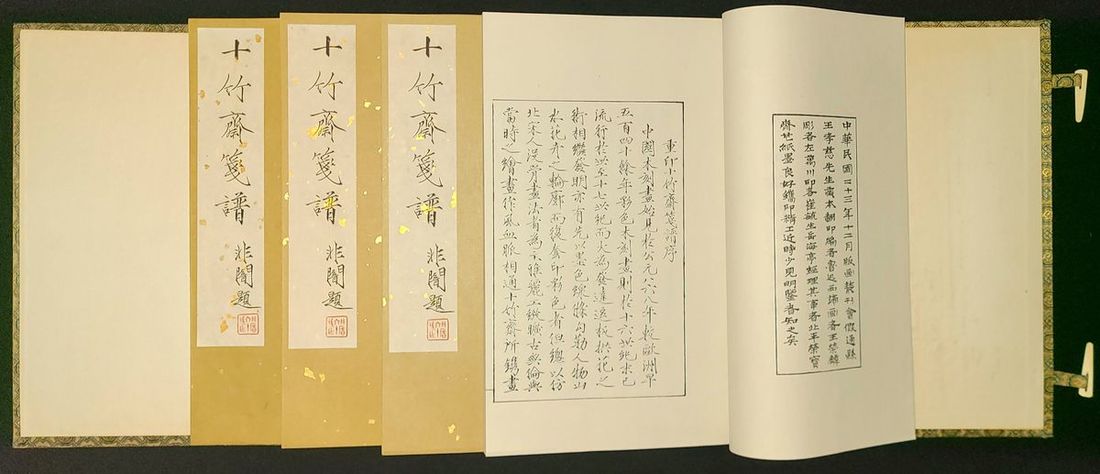 十竹齋箋譜
非闇題
十竹齋箋譜
非闇題
十竹齋箋譜
非闇題
重印十竹齋箋譜序
中國木刻畫始見於公元八六八年較歐洲早
五百四十餘年彩色木刻畫則於十六世紀末已
流行於世至十七世紀而大為發達板拱花之
術相繼發明亦有先以墨色線條勾勒人物山
水花卉之輪廓而復套印彩色者但總以仿
北宋人沒骨畫法者為主雅麗工緻古無倫與
當時之繪畫作風血脈相通十竹齋所鐫畫
中華民國二十三年十二月版画叢刊會假通縣
王孝慈先生藏本翻印編者魯迅西諦画者王榮麟
彫者左萬川印者崔毓生岳海亭經理其事者北平榮寶
齋也紙墨良好鐫印精工近時少見明鑒者知之矣